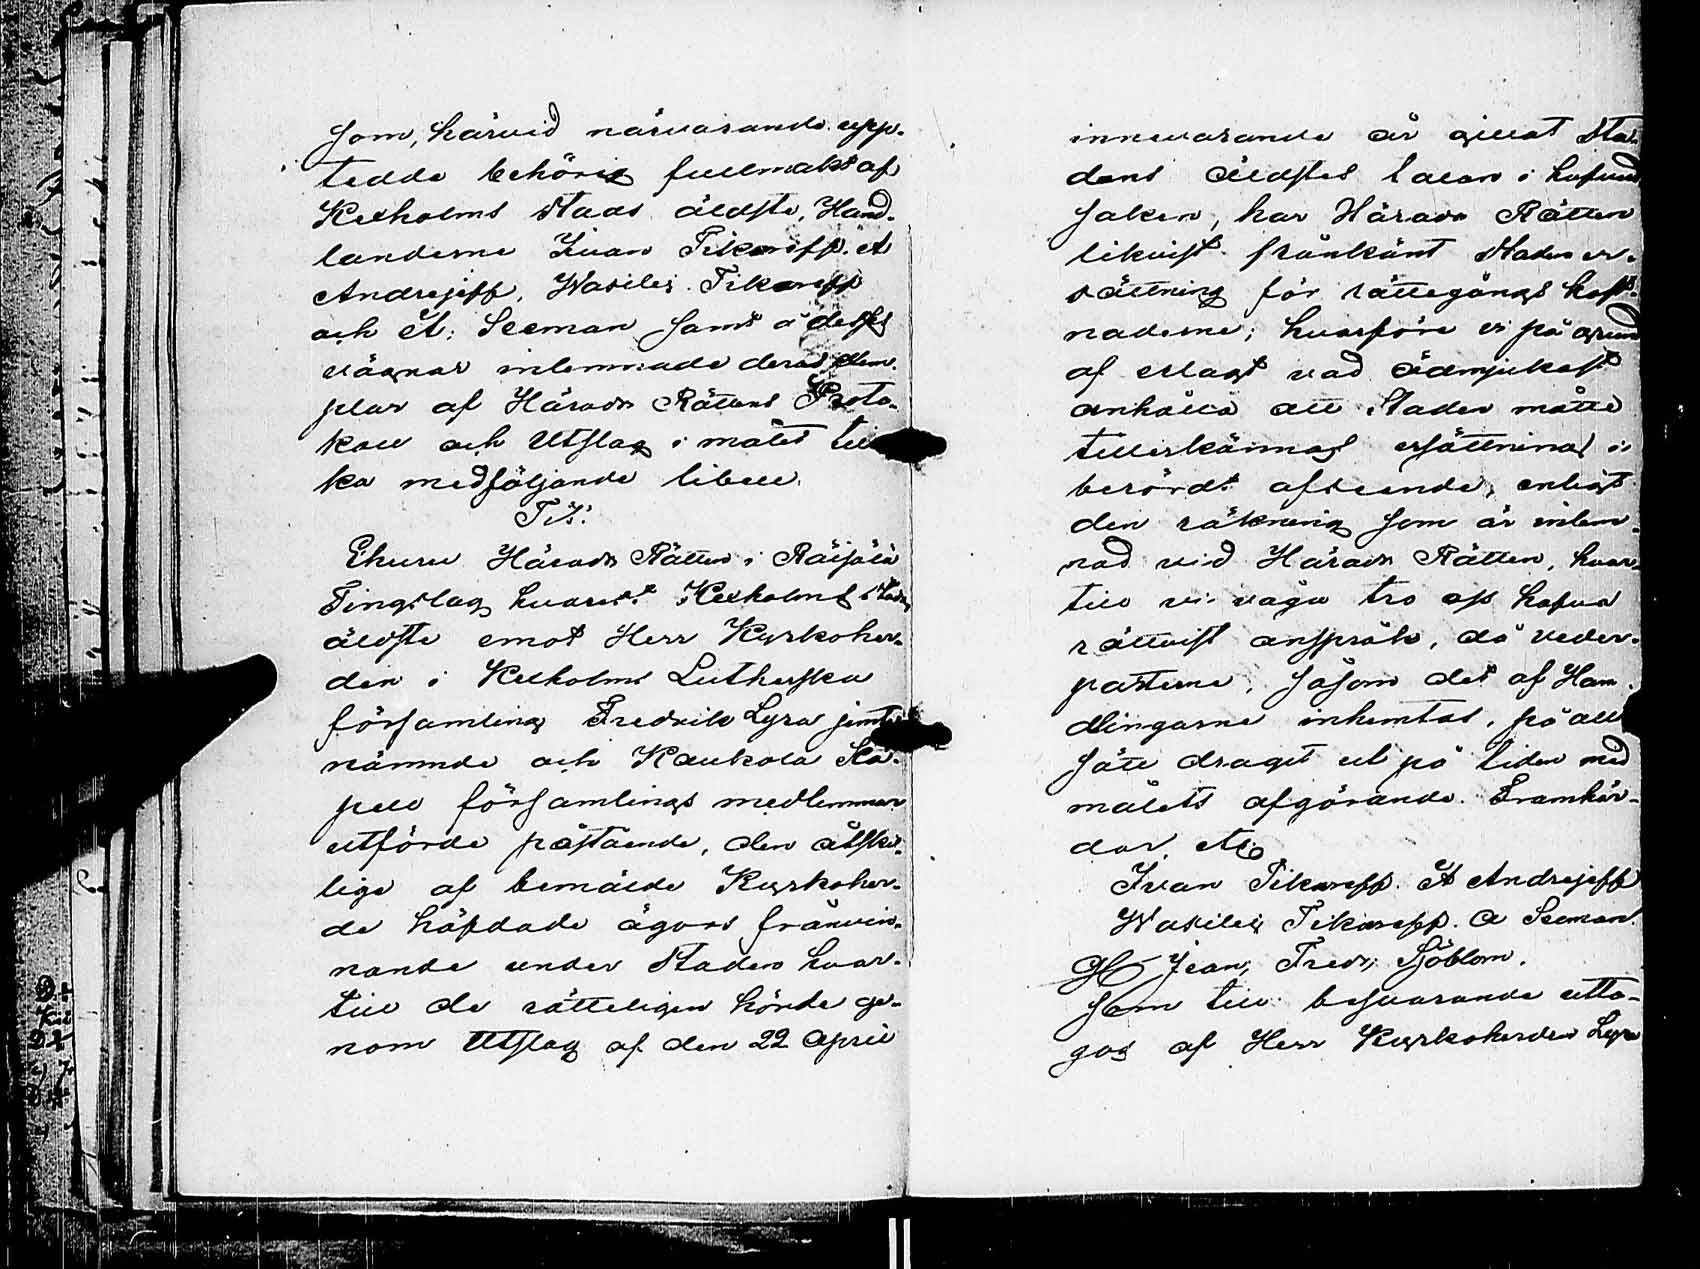 som, härvid närvarande upp-
tedde behörig fullmakt af
Kexholms Stads äldste, Hand-
landerne Ivan Tikanoff. A
Andrejeff, Wasilej Tikanoff
och A: Seeman samt å desses
vägnar inlemnade deras exem-
plar af Härads Rättens Proto-
koll och Utslag i målet till-
ka medföljande libell.
Tit:
Ehuru Härads Rätten i Räisälä
Tingslag hvarest Kexholms Stads
äldste emot Herr Kyrkoher-
den i Kexholms Lutherska
församling Fredrik Lyra jemte
nämnde och Kaukola Ka-
pell församlings medlemmar
utförde påstående, den åtski-
lige af bemälde Kyrkoher-
de häfdade ägors från vin-
nande under Staden hvar-
till de rätteligen hörde ge-
nom Utslag af den 22 April
innevarande år gillat Sta-
dens äldstes talan i hufvud
saken, har Härads Rätten
likvist frånkänt Staden er-
sättning för rättegångs kost-
naderne; hvarföre vi på grund
af erlagt vad ödmjukast
anhålla att Staden måtte
tillerkännas ersättning i
berördt afseende, enligt
den räkning som är inlem-
nad vid Härads Rätten, hvar-
till vi våga tro oss hafva
rättvist anspråk, då veder-
parterne, såsom det af Han-
dlingarne inhemtas, på allt
sätt dragit ut på tiden med
målets afgörande. Framhär-
dar etc
Ivan Tikanoff. A Andrejeff
Wasilej Tikanoff. A Seeman.
Jean, Fredr. Sjöblom.
Som till besvarande utto-
gos af Herr Kyrkoherden Lyra